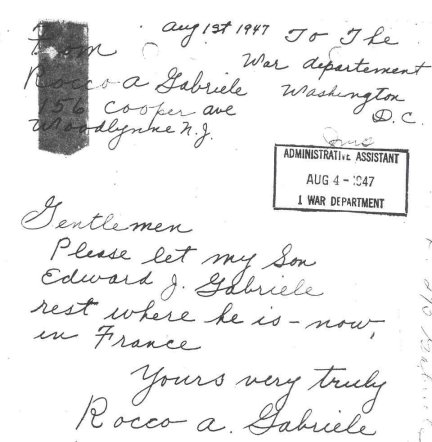 Aug 1st 1947
From
Rocco A Gabriele
156 Cooper ave
Woodlynne N.J.
To The
War departement
Washington
D.C.
ADMINISTRATIVE ASSISTANT
AUG 4 - 1947
WAR DEPARTMENT
Gentlemen
Please let my Son
Edward J. Gabriele
rest where he is - now,
in France
Yours very truly
Rocco A. Gabriele